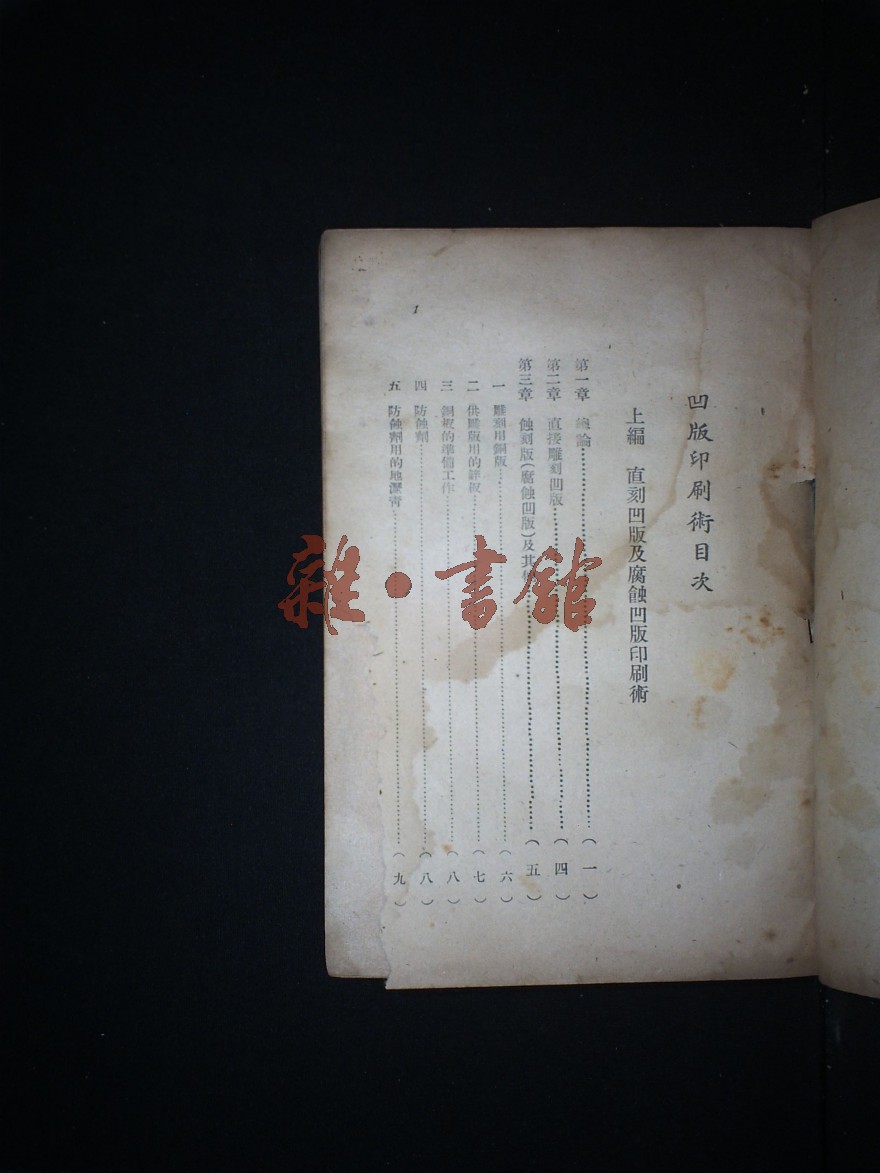 凹版印刷術目次
上編 直刻凹版及腐蝕凹版印刷術
第一章 總論……(一)
第二章 直接雕刻凹版……(四)
第三章 蝕刻版(腐蝕凹版)及其……(五)
一 雕刻用銅版……(六)
二 供雕版用的鋅板……(七)
三 銅板的準備工作……(八)
四 防蝕劑……(八)
五 防蝕劑用的地瀝靑……(九)
1
雜·書館